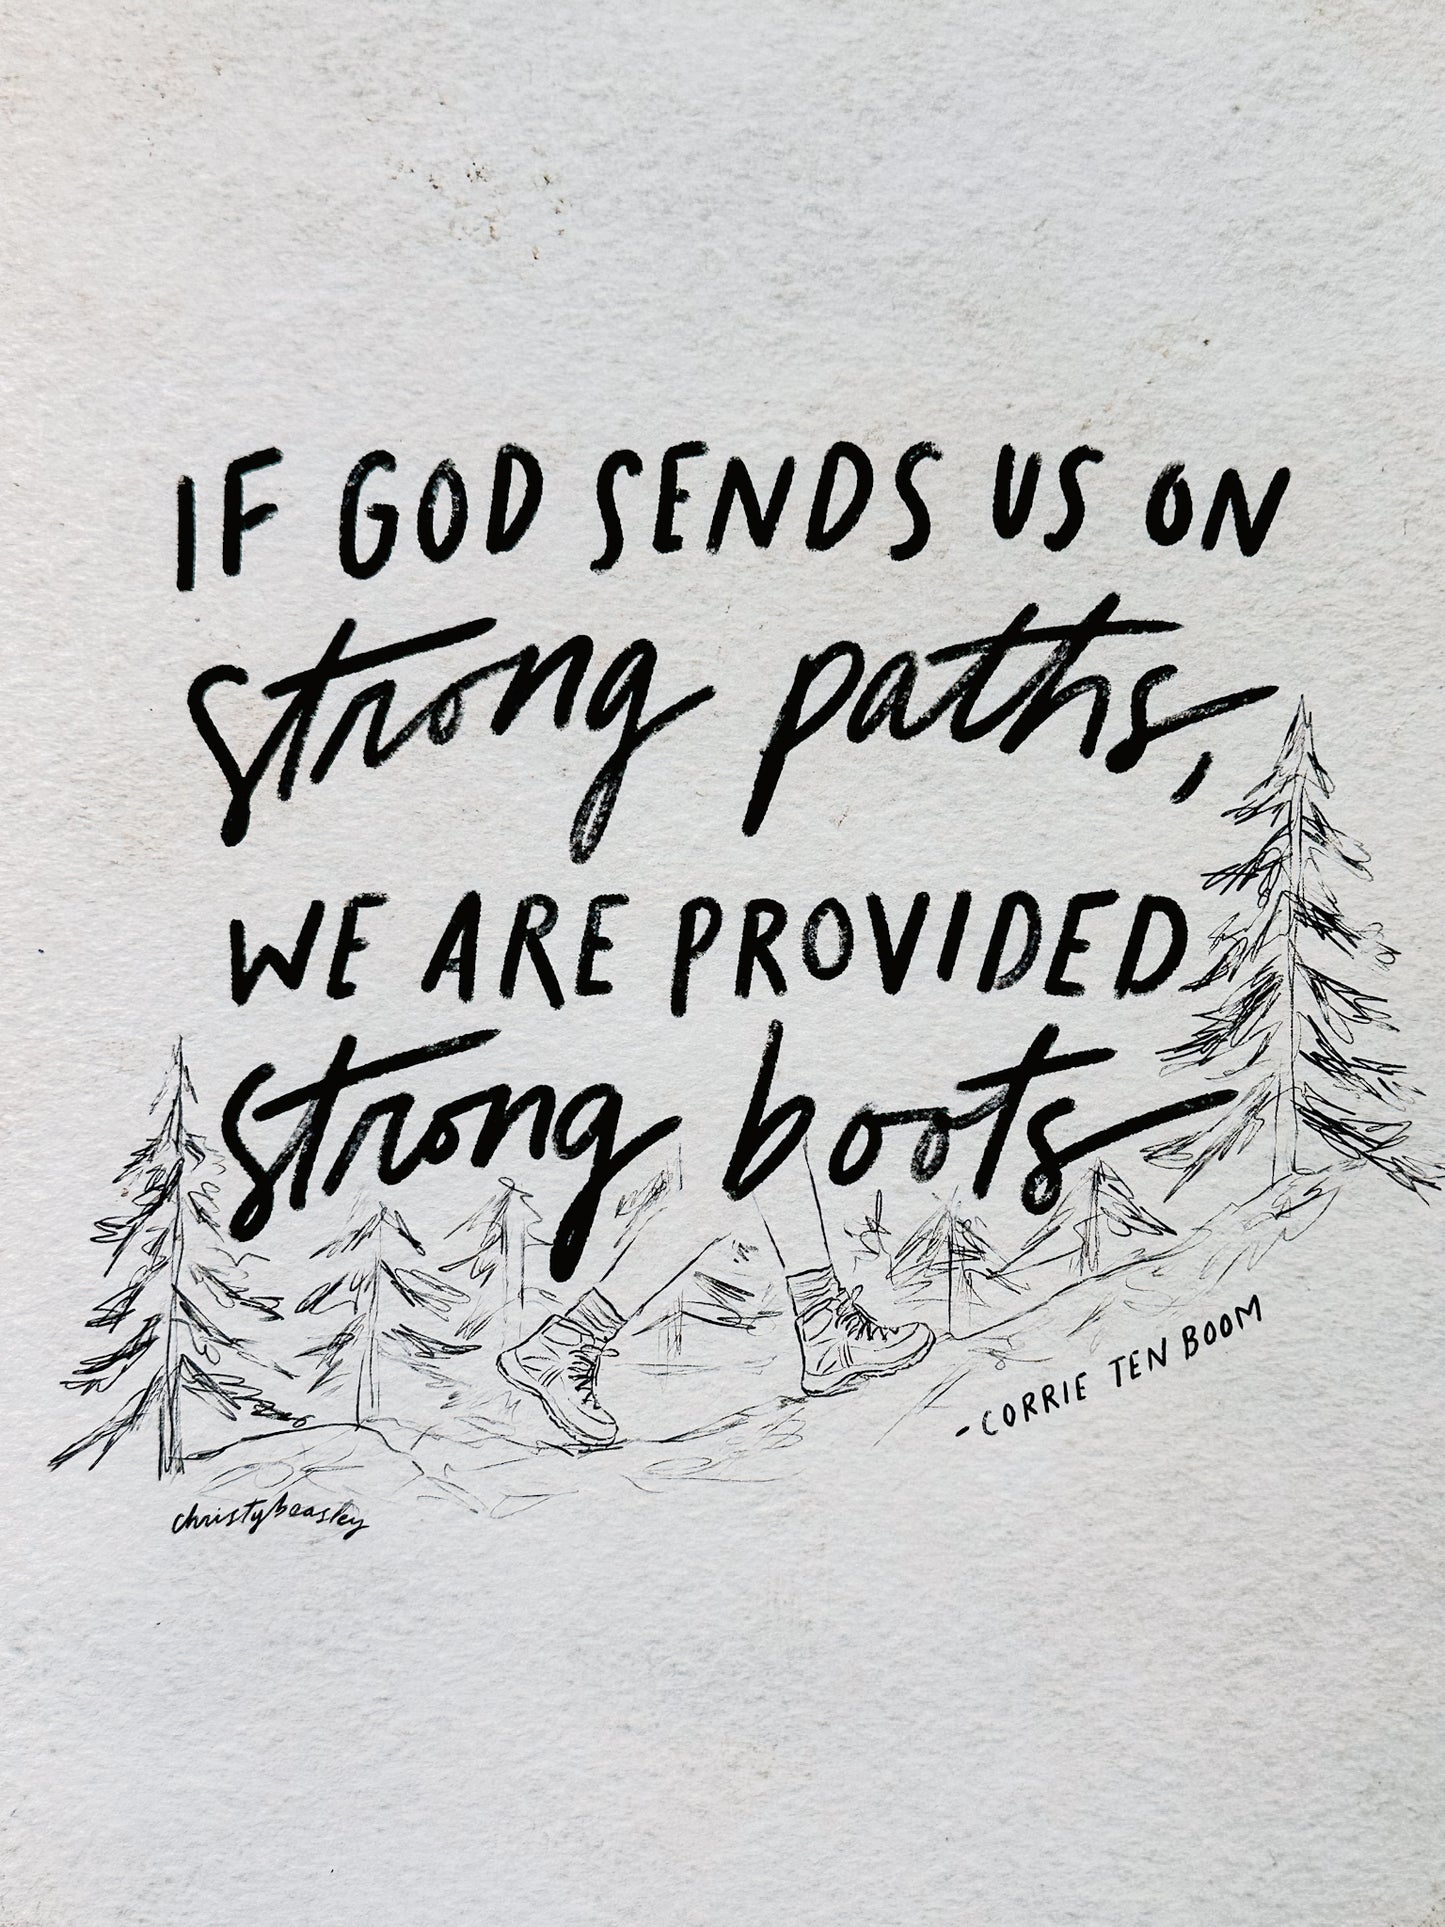 IF GOD SENDS US ON
strong paths,
WE ARE PROVIDED
strong boots
- CORRIE TEN BOOM
christybeasley